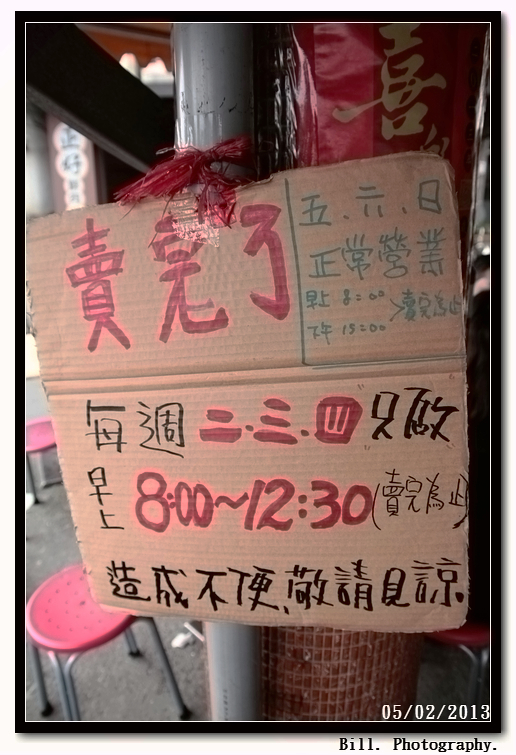 喜
正好
賣完了
五.六.日
正常營業
早上 8:00
下午 15:00 >賣完為止
每週二.三.四只做
早上 8:00~12:30(賣完為止)
造成不便,敬請見諒
05/02/2013
Bill. Photography.